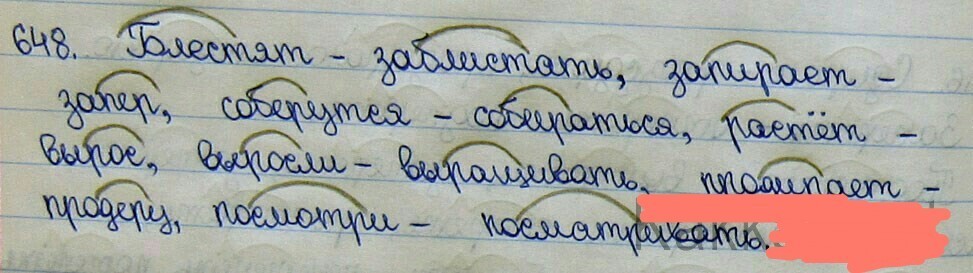 648. Блестят - заблистать, запирает -
запер, соберутся - собираться, растёт -
вырос, выросли - выращивать,
продеру, посмотри - посматривать.